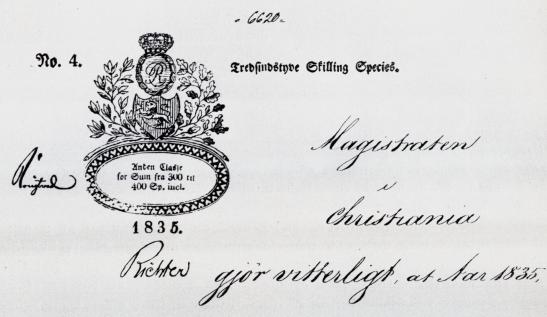 6620
No. 4.
Tredsindstyve Skilling Species.
Anden Classe
for Sum fra 300 til
400 Sp. incl.
1835.
Richter
Magistraten
i
Christiania
gjör vitterligt, at Aar 1835,